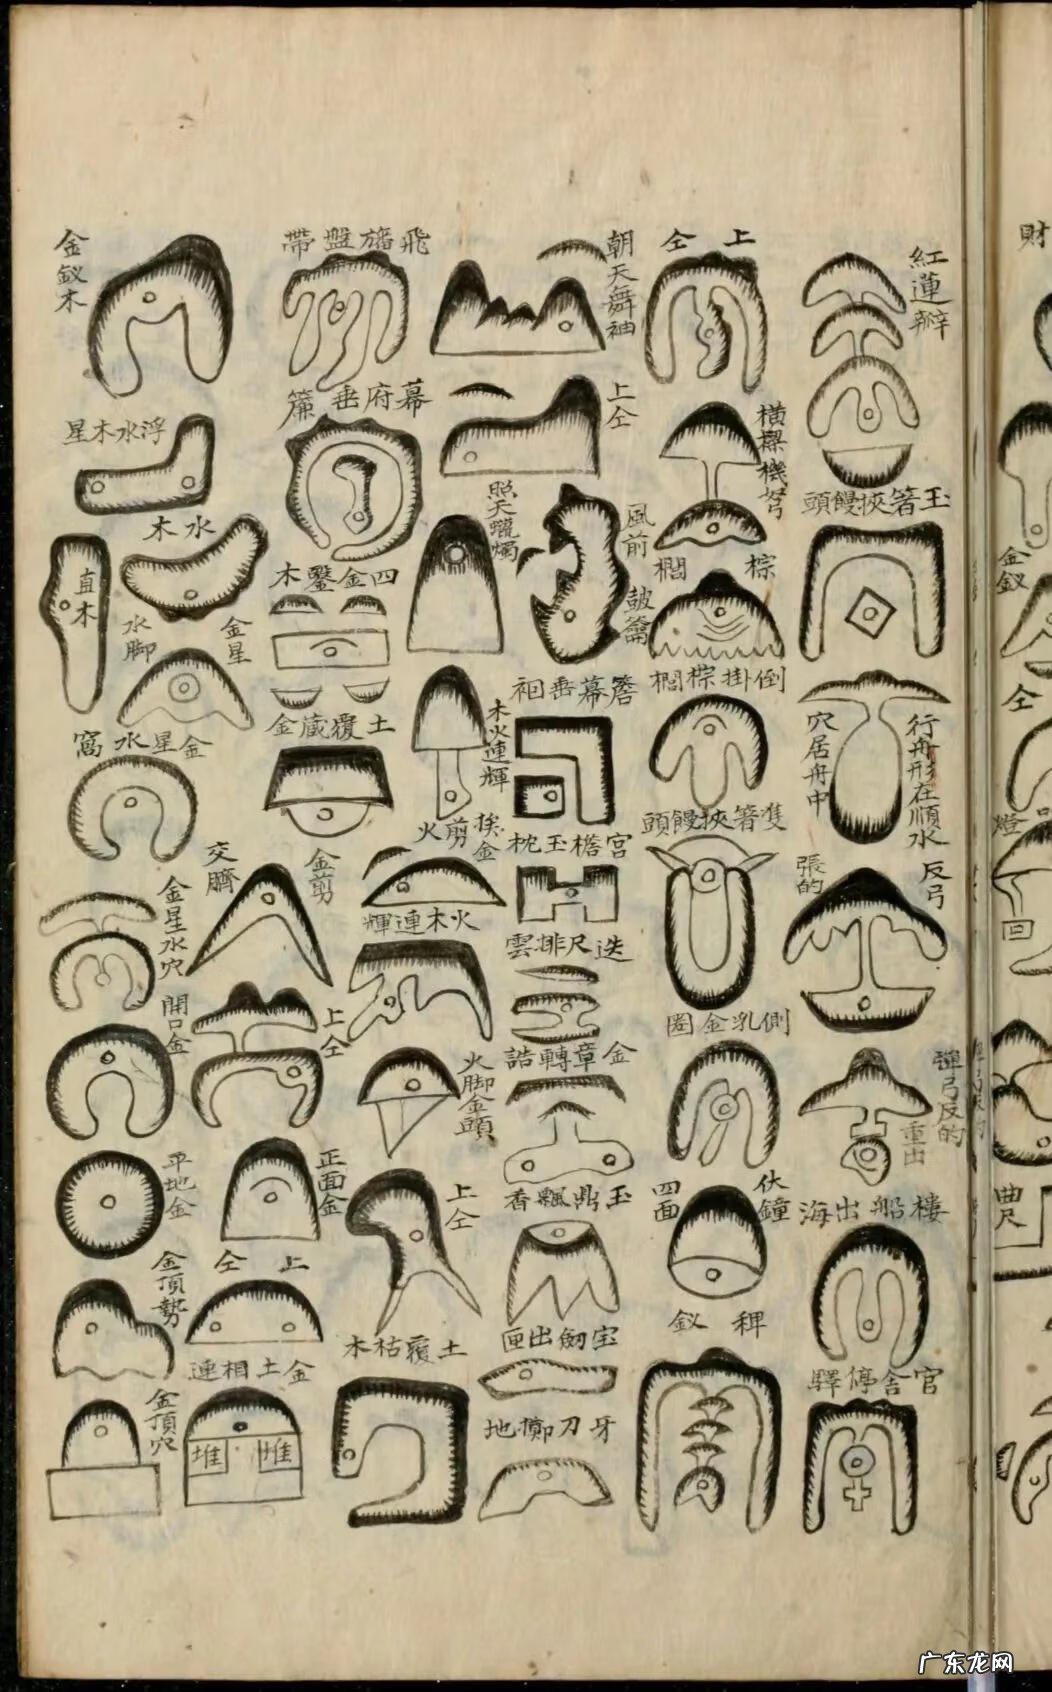 紅蓮瓣
玉箸挾饅頭
行舟形在順水
穴居舟中
反弓
張的
彈弓反的
重出
樓船出海
官舍停驛
上仝
橫櫻機弩
棕櫚
倒掛棕櫚
隻箸挾饅頭
側乳金圈
伏鐘
四面
稗釵
朝天舞袖
上仝
風前皷籥
簷幕垂裀
宮檐玉枕
迭尺排雲
金章轉誥
玉鼎飄香
宝劒出匣
牙刀擲地
飛旛盤帶
幕府垂簾
照天蠟燭
木火連輝
挨金剪火
火木連輝
火脚金頭
上仝
土覆枯木
四金鑿木
土覆蔵金
金剪
交臍
上仝
正面金
上仝
金土相連
堆
堆
金釵木
浮水木星
水木
直木
金星
水脚
金星水窩
金星水穴
開口金
平地金
金頂勢
金頂穴
財
金釵
仝
燈
回
曲尺
广东龙网